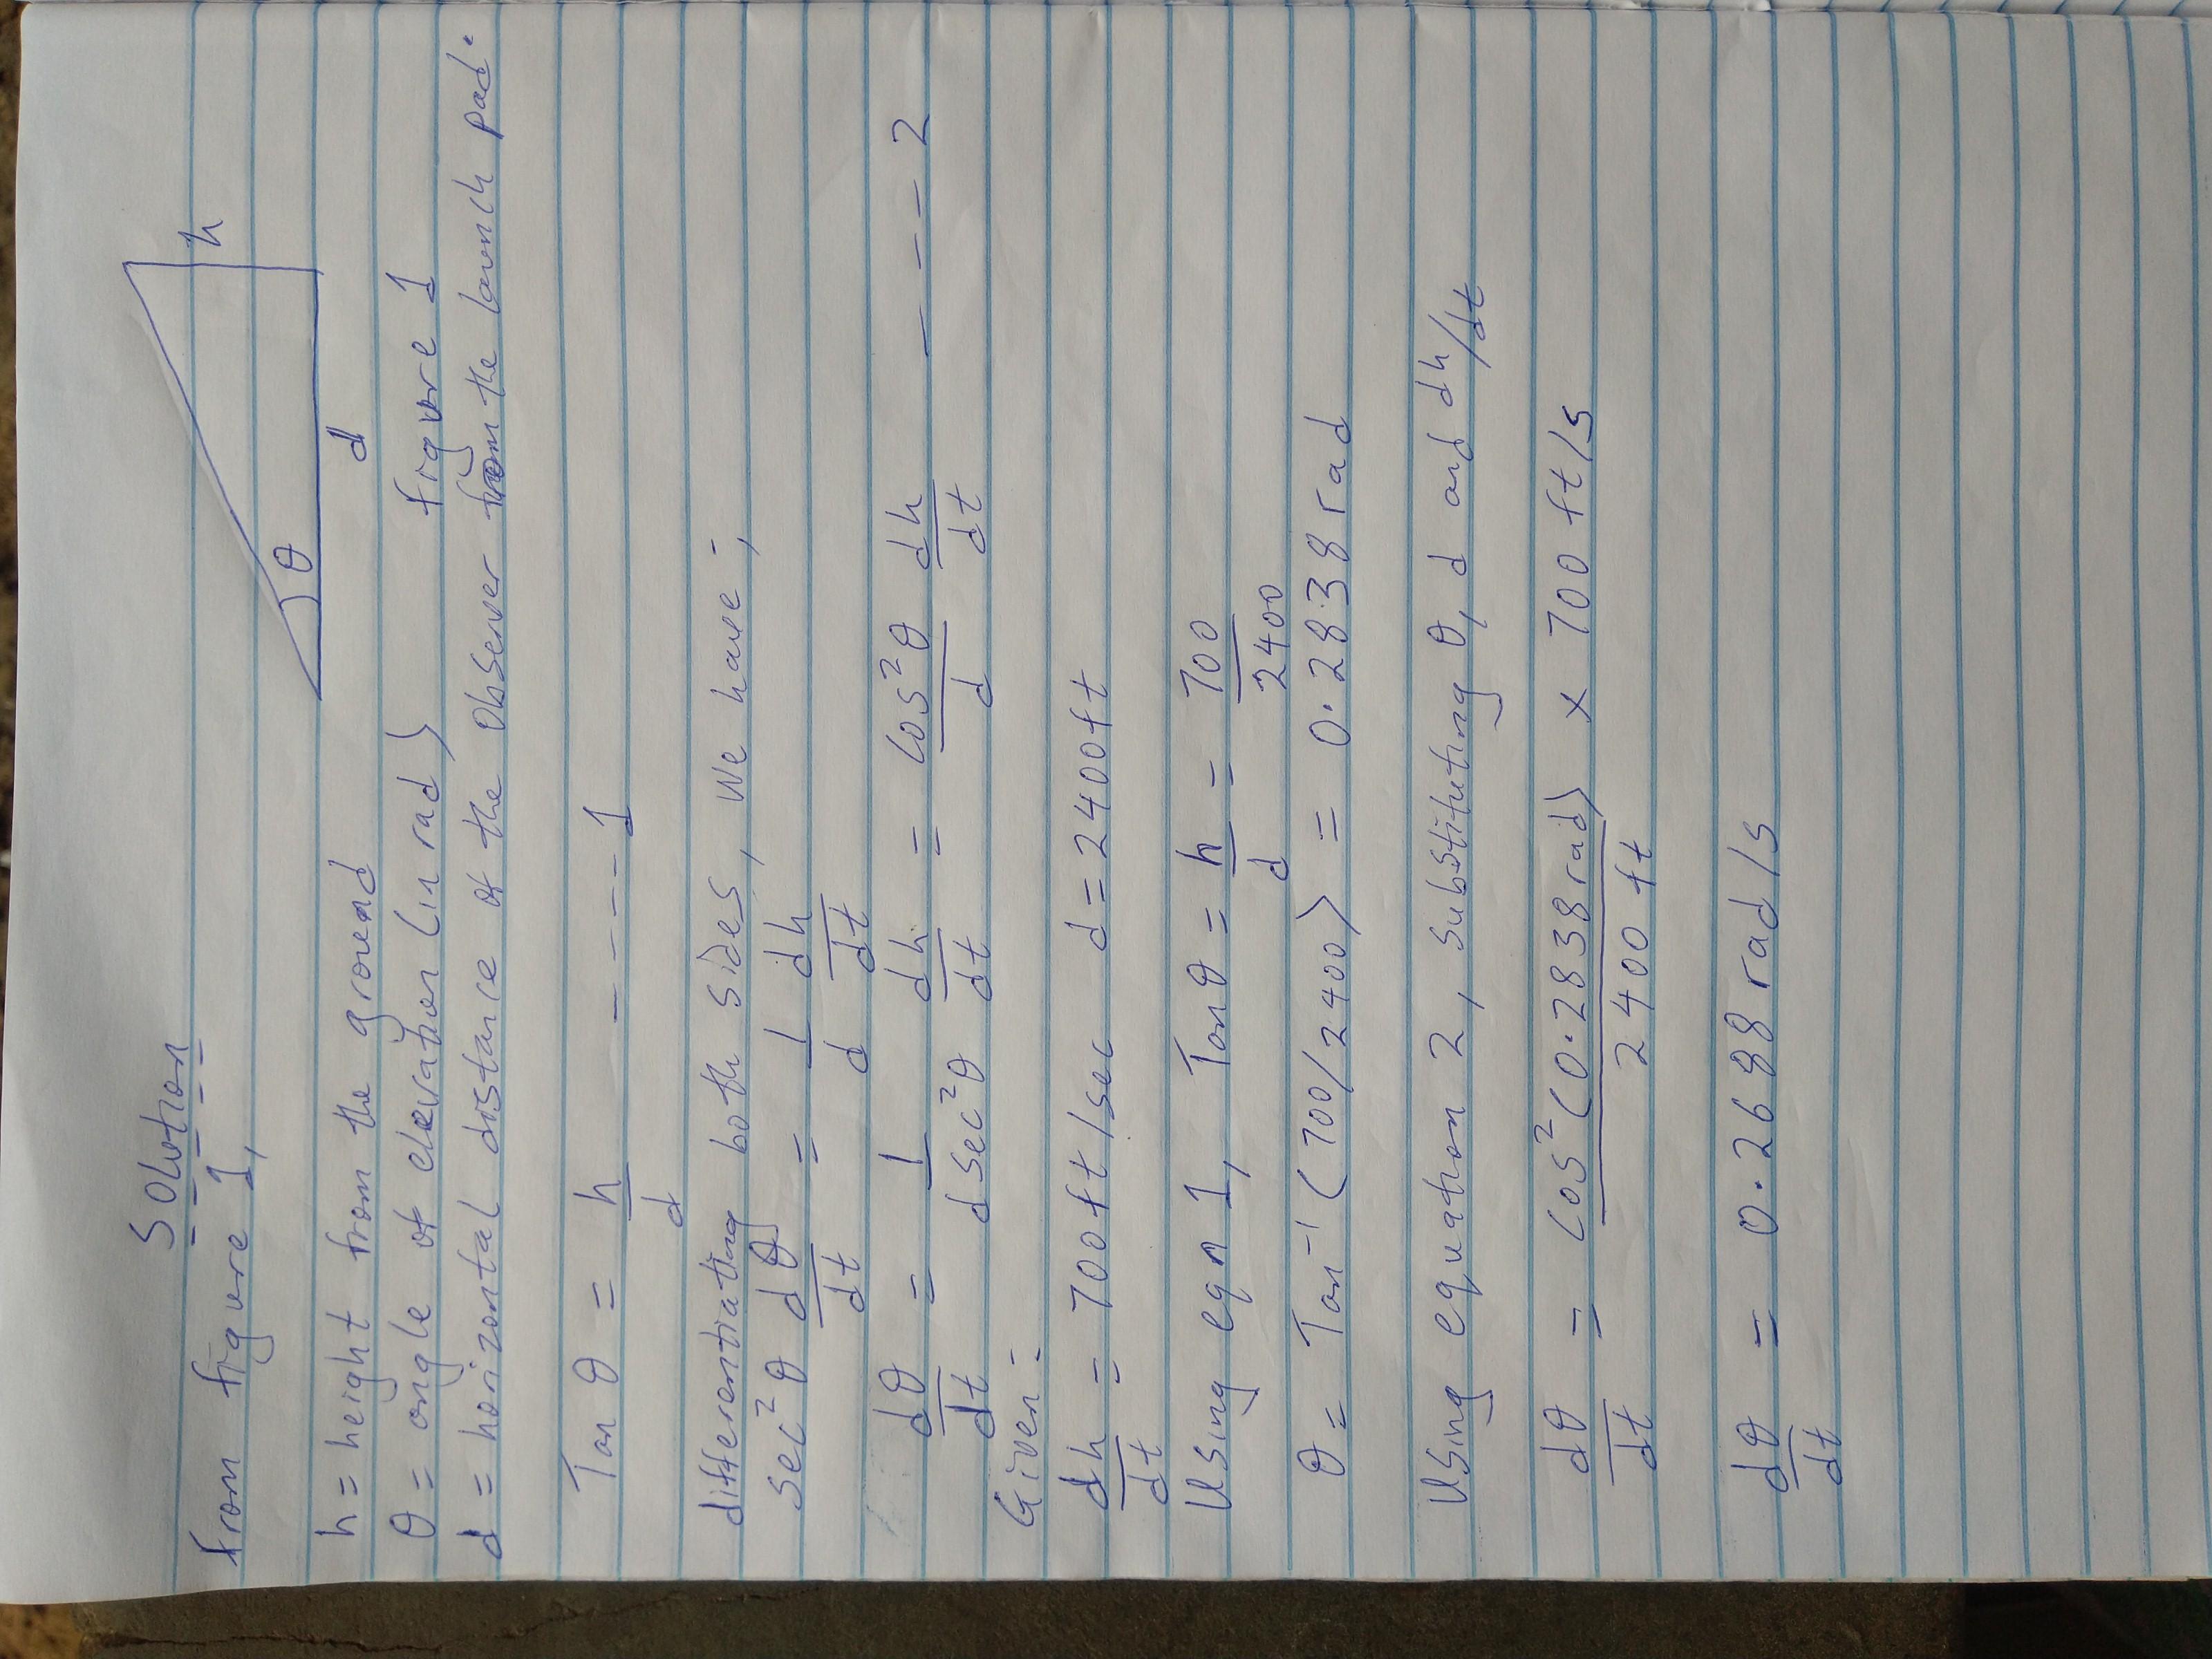 Solution
from figure 1,
h
θ
d
h = height from the ground
θ = angle of elevation (in rad)
figure 1
d = horizontal distance of the observer from the launch pad.
Tan θ = h/d - - - - 1
differentiating both sides, we have;
sec² θ dθ/dt = 1/d dh/dt
dθ/dt = 1/d sec² θ dh/dt = cos² θ/d dh/dt - - - 2
Given:-
dh/dt = 700 ft/sec d = 2400 ft
Using eqn 1, Tan θ = h/d = 700/2400
θ = Tan⁻¹ (700/2400) = 0.2838 rad
Using equation 2, substituting θ, d and dh/dt
dθ/dt = cos² (0.2838 rad)/2400 ft × 700 ft/s
dθ/dt = 0.2688 rad/s